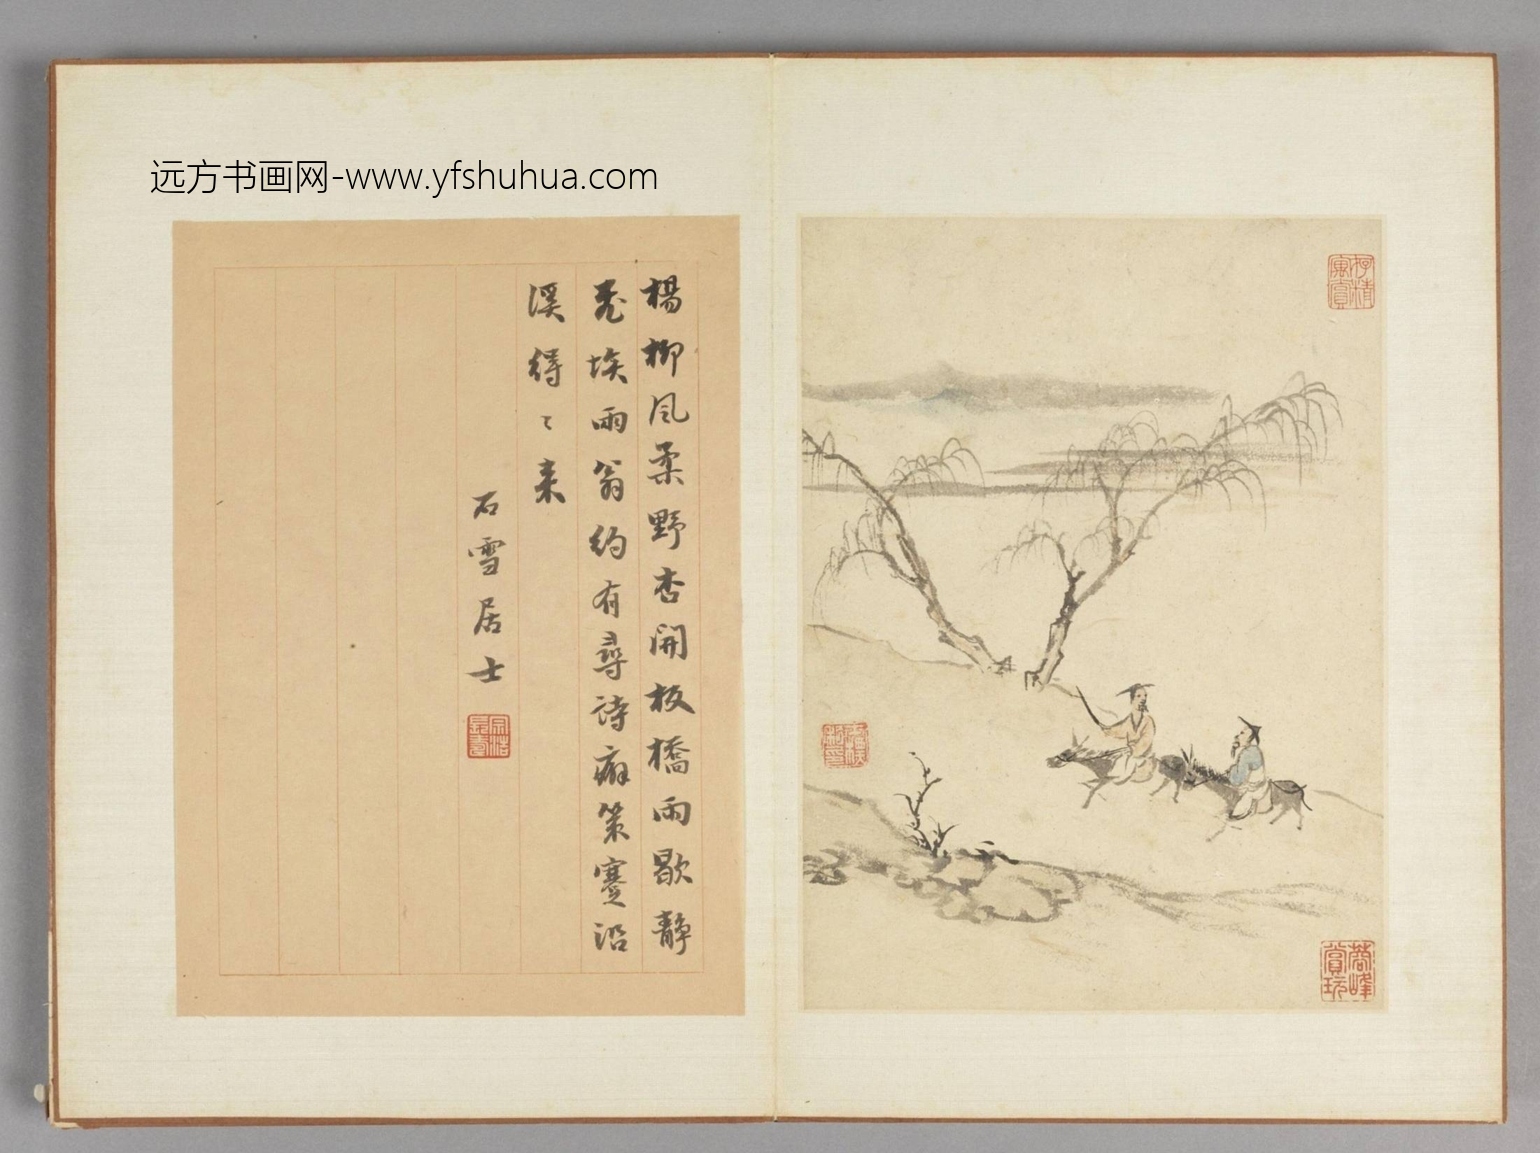 远方书画网-www.yfshuhua.com
楊柳風柔野杏開板橋雨歇靜
無埃兩翁約有尋詩癖策蹇沿
溪得〻来
石雪居士
蓉峰賞玩